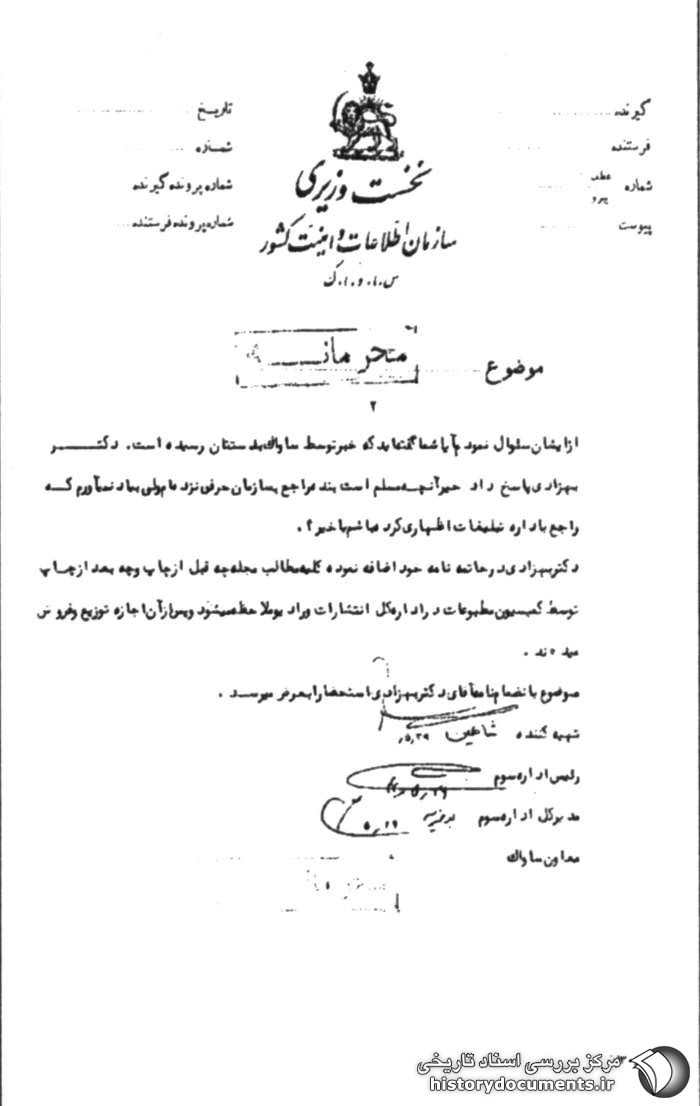 گیرنده
فرستنده
شماره عطف پیرو
پیوست
تاریخ
شماره
شماره پرونده گیرنده
شماره پرونده فرستنده
نخست وزیری
سازمان اطلاعات و امنیت کشور
س.ا.و.ا.ک
موضوع
محرمانه
۲
از ایشان سئوال نمودم آیا شما گفته‌اید که خبر توسط ساواک بدستتان رسیده است. دکتر
بهزادی پاسخ داد خیر آنچه مسلم است بنده راجع بسازمان حرفی نزده‌ام ولی بیاد نمیآورم که
راجع باداره تبلیغات اظهاری کرده باشم یا خیر؟.
دکتر بهزادی در خاتمه نامه خود اضافه نموده کلیه مطالب مجله چه قبل از چاپ و چه بعد از چاپ
توسط کمیسیون مطبوعات در اداره کل انتشارات و رادیو ملاحظه میشود و پس از آن اجازه توزیع و فروش
میدهند.
موضوع بانضمام نامه آقای دکتر بهزادی استحضارا بعرض میرسد.
تهیه کننده شاهین ۵٫۲۹
رئیس اداره سوم
مدیر کل اداره سوم ۵٫۲۹
معاون ساواک
مرکز بررسی اسناد تاریخی
historydocuments.ir